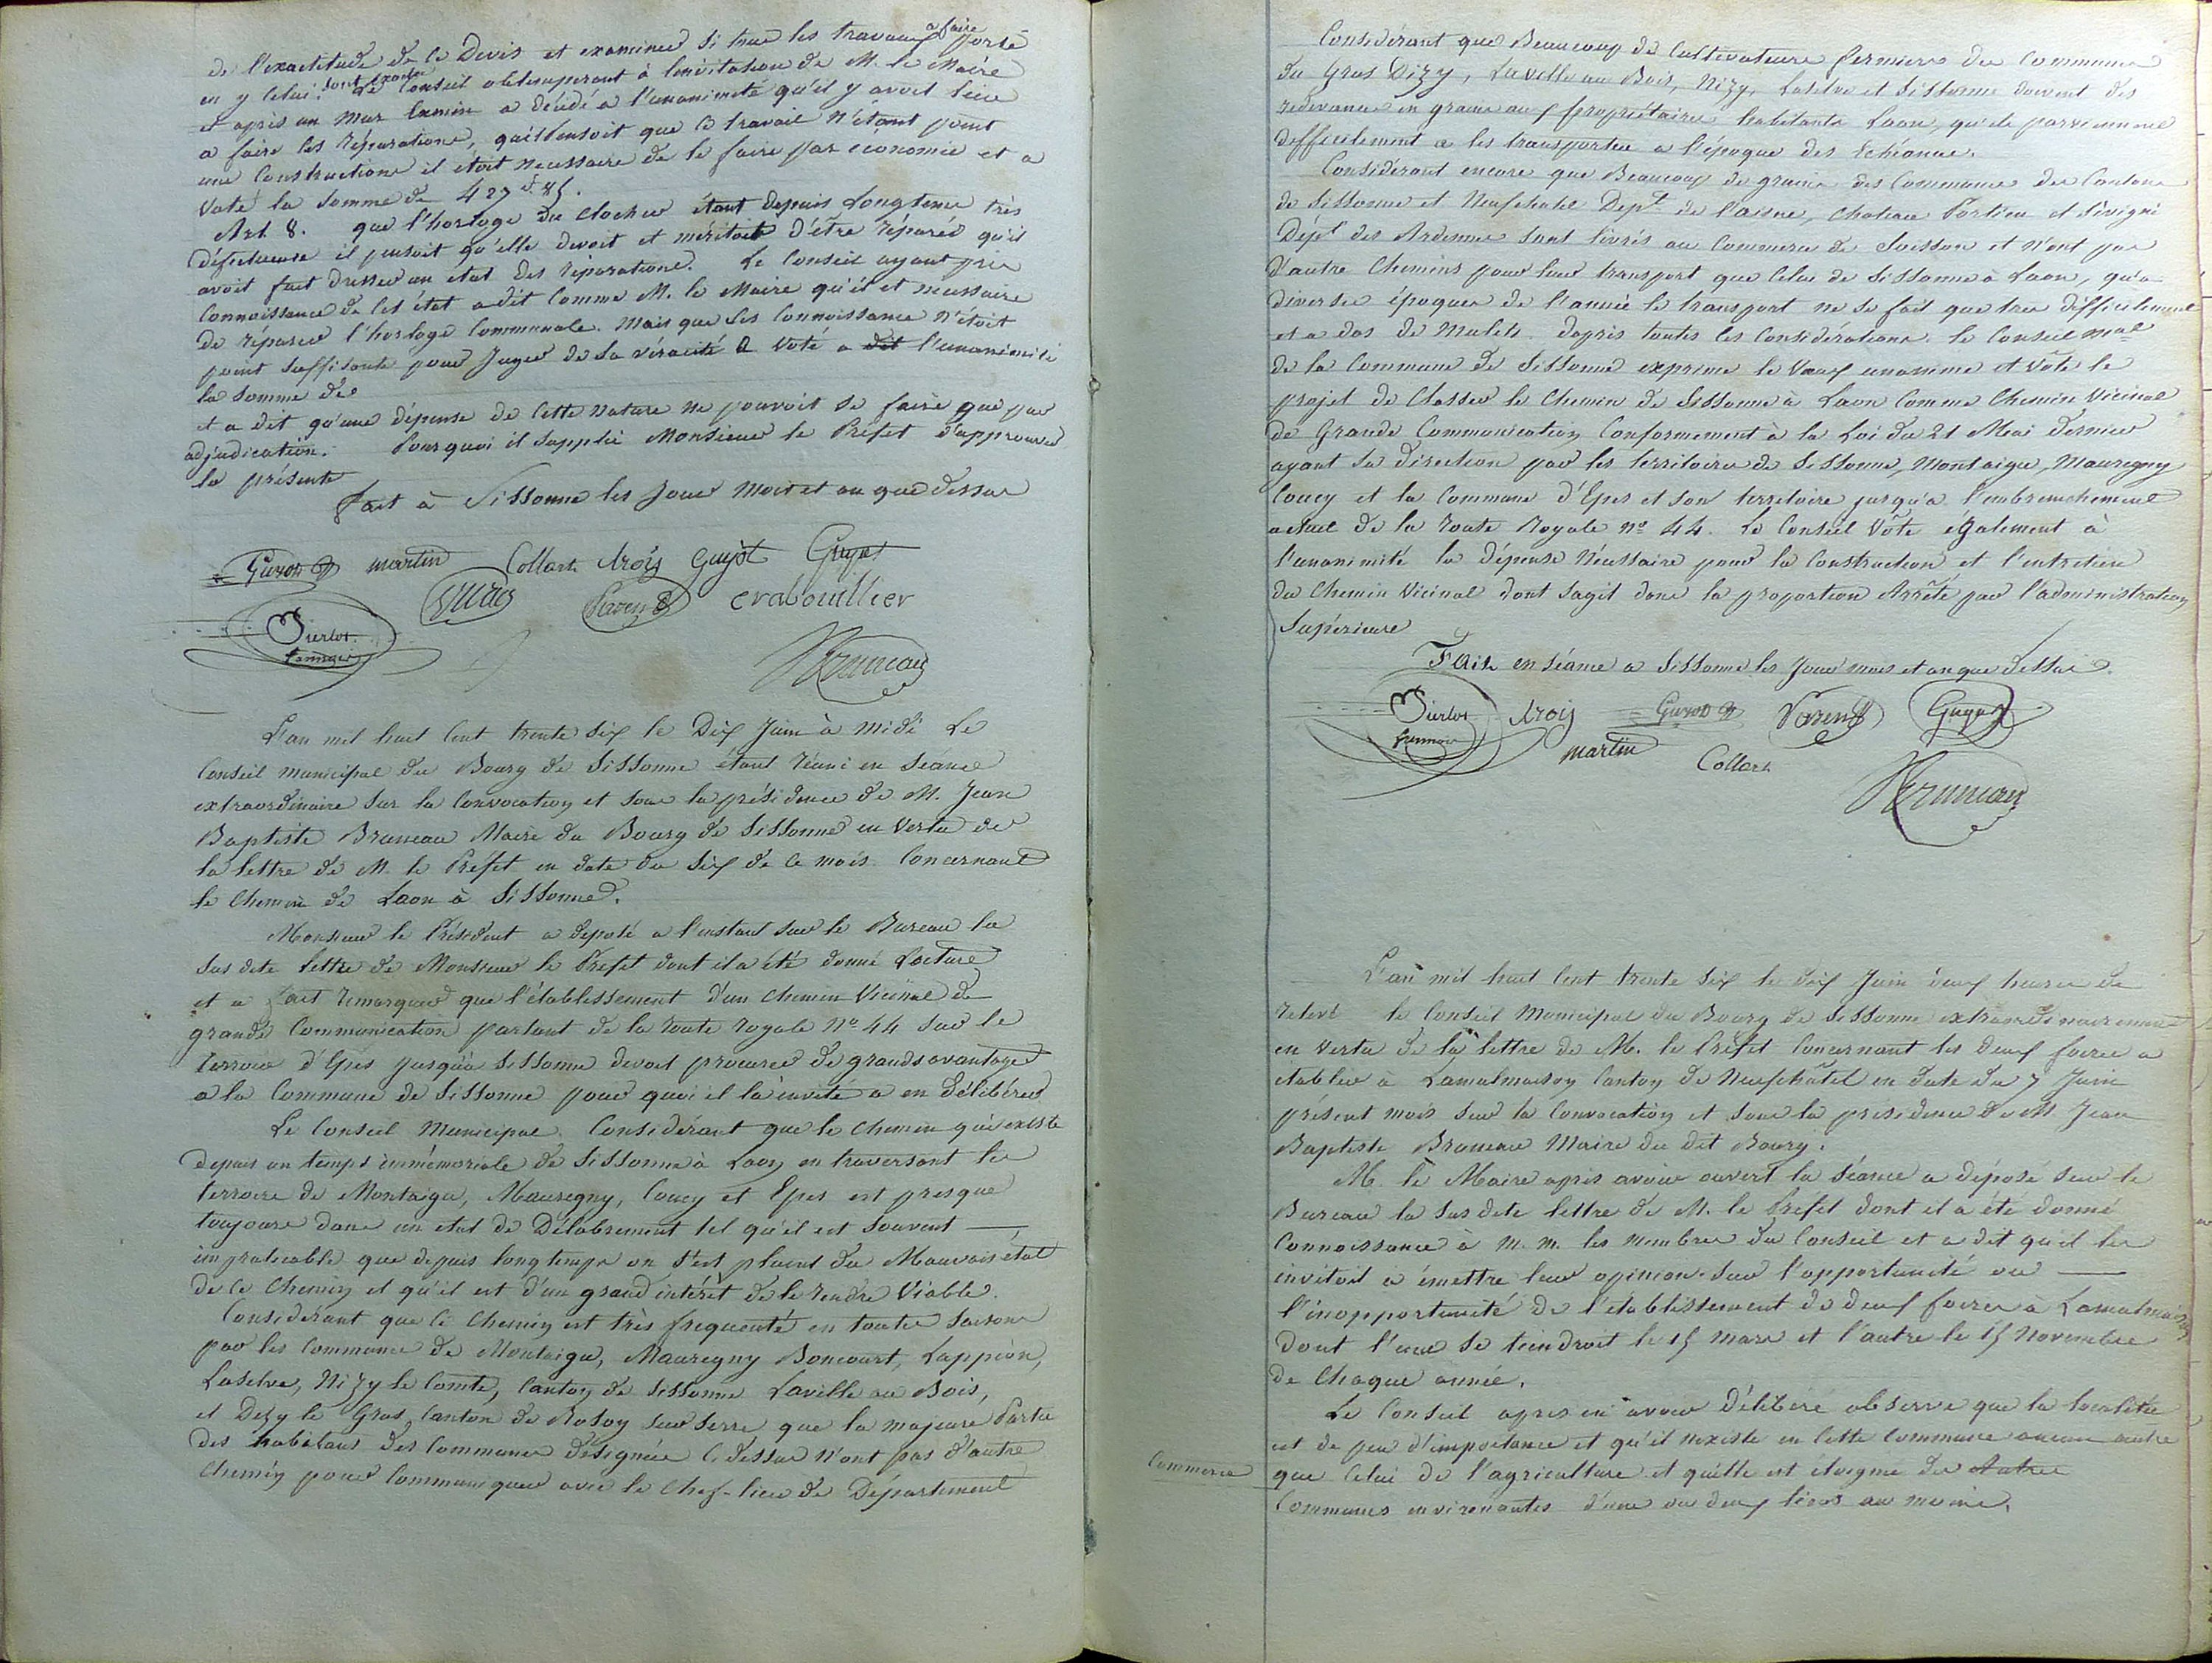 de l'exactitude de ce Devis et examiner si tous les travaux à faire porté
en y celui sont exacts. Le Conseil obtemperant à linvitation de M. le Maire
et après un mur Examen a décidé a l'unanimité qu'il y avoit lieu
a faire les réparations, qu'il pensoit que ce travail n'étant point
une Construction il étoit necessaire de le faire par économie et a
Voté la somme de 427 f 85.
Art. 8. que l'horloge du Clocher étant depuis Longtems très
défectueuse il pensoit qu'elle devoit et méritoit d'être réparée qu'il
avoit fait dresser un état des réparations. Le Conseil ayant pris
Connoissance de cet état a dit Comme M. le Maire qu'il est necessaire
de réparer l'horloge Communale. Mais que ses Connoissance n'étoit
point suffisante pour Juger de sa véracité a Voté a dit l'unanimité
la somme de
et a dit qu'une dépense de Cette nature ne pouvoit se faire que par
adjudication. Pourquoi il supplie Monsieur le Préfet d'approuver
la présente
Fait à Sissonne les Jour Mois et an que dessus
Guyot martin Collart Aroy Guyot Guyot
Parent crabouillier
Bruneau
L'an mil huit Cent trente six le Dix Juin à midi Le
Conseil municipal du Bourg de Sissonne étant réuni en séance
extraordinaire sur la Convocation et sous la présidence de M. Jean
Baptiste Bruneau Maire du Bourg de Sissonne en Vertu de
la lettre de M. le Préfet en date du six de Ce mois Concernant
le Chemin de Laon à Sissonne.
Monsieur le Président a déposé a l'instant sur le Bureau la
sus dite lettre de Monsieur le Préfet dont il a été donné Lecture
et a fait remarquer que l'établissement d'un Chemin Vicinal de
grande Communication partant de la route royale No 44 sur le
Terroir d'Epes jusqu'à Sissonne devoit procurer de grands avantages
a la Commune de Sissonne pour quoi il la invité a en Délibérer
Le Conseil Municipal Considérant que le Chemin qui existe
depuis un temps immémoriale de Sissonne à Laon en traversant le
terroire de Montaigu, Mauregny, Coucy et Epes est presque
toujours dans un etat de Délabrement tel qu'il est souvent
impraticable que depuis longtemps on s'est plaint du Mauvais état
de Ce Chemin et qu'il est d'un grand intérêt de le rendre Viable.
Considérant que Ce Chemin est très frequenté en toutes saisons
par les Communes de Montaigu, Mauregny Boncourt, Lappion,
Laselve, Nizy le Comte, Canton de Sissonne Laville au Bois,
et Dizy le Gros Canton de Rosoy sur Serre que la majeure Partie
des habitans des Communes désignées Cidessus n'ont pas d'autre
Chemin pour Communiquer avec le Chef-lieu de Département
Considérant que Beaucoup de Cultivateurs fermiers des Communes
du Gros Dizy, Laville au Bois, Nizy, Laselve et Sissonne doivent des
redevances en grains aux propriétaires habitants Laon, qu'ils parviennent
difficilement a les transporter a l'époque des Echéances.
Considérant encore que Beaucoup de grains des Communes des Cantons
de Sissonne et Neufchatel Dépt. de l'aisne, Chateau Portien et Sévigni
Dépt des Ardennes sont livrés au Commerce de Soissons et n'ont pas
d'autre Chemins pour leur transport que Celui de Sissonne à Laon, qu'a
diverses époques de l'année le transport ne se fait que très difficilement
et a dos de Mulets. dapris toutes les Considérations le Conseil Mal
de la Commune de Sissonne exprime le Vœux unanime et Vôte le
projet de Classer le Chemin de Sissonne à Laon Comme Chemin Vicinal
de Grande Communication Conformement à la Loi du 21 Mai dernier
ayant sa direction par les territoires de Sissonne, Montaigu, Mauregny
Coucy et la Commune d'Epes et son territoire jusqu'a l'embranchement
actuel de la Route Royale No 44. Le Conseil Vôte également à
l'unanimité la dépense Nécessaire pour la Construction et l'entretien
du Chemin Vicinal dont sagit dans la proportion Arrêté par l'administration
Supérieure
Fait en séance a Sissonne les Jour mois et an que dessus.
Aroy Guyot Parent Guyot
martin Collart
Bruneau
L'an mil huit Cent trente six le dix Juin deux heures de
relevé le Conseil Municipal du Bourg de Sissonne extraordinairement
en Vertu de la lettre de M. le Préfet Concernant les deux foires a
etablir à Lamalmaison Canton de Neufchâtel en date du 7 Juin
présent mois sur la Convocation et sous la présidence de M. Jean
Baptiste Bruneau Maire du dit Bourg.
M. le Maire après avoir ouvert la séance a déposé sur le
Bureau la sus dite lettre de M. le Préfet dont il a été donné
Connoissance à M. M. les Membres du Conseil et a dit qu'il les
invitoit à émettre leur opinion sur l'opportunité ou
l'inopportunité de l'établissement de deux foires à Lamalmaison
dont l'une se tiendroit le 15 Mars et l'autre le 15 Novembre
de Chaque année.
Le Conseil apres en avoir Délibéré observe que la localité
est de peu d'importance et qu'il nexiste en Cette Commune aucun autre
Commerce que Celui de l'agriculture et quelle est éloignée des Autres
Communes environantes d'une ou deux lieues au moins.